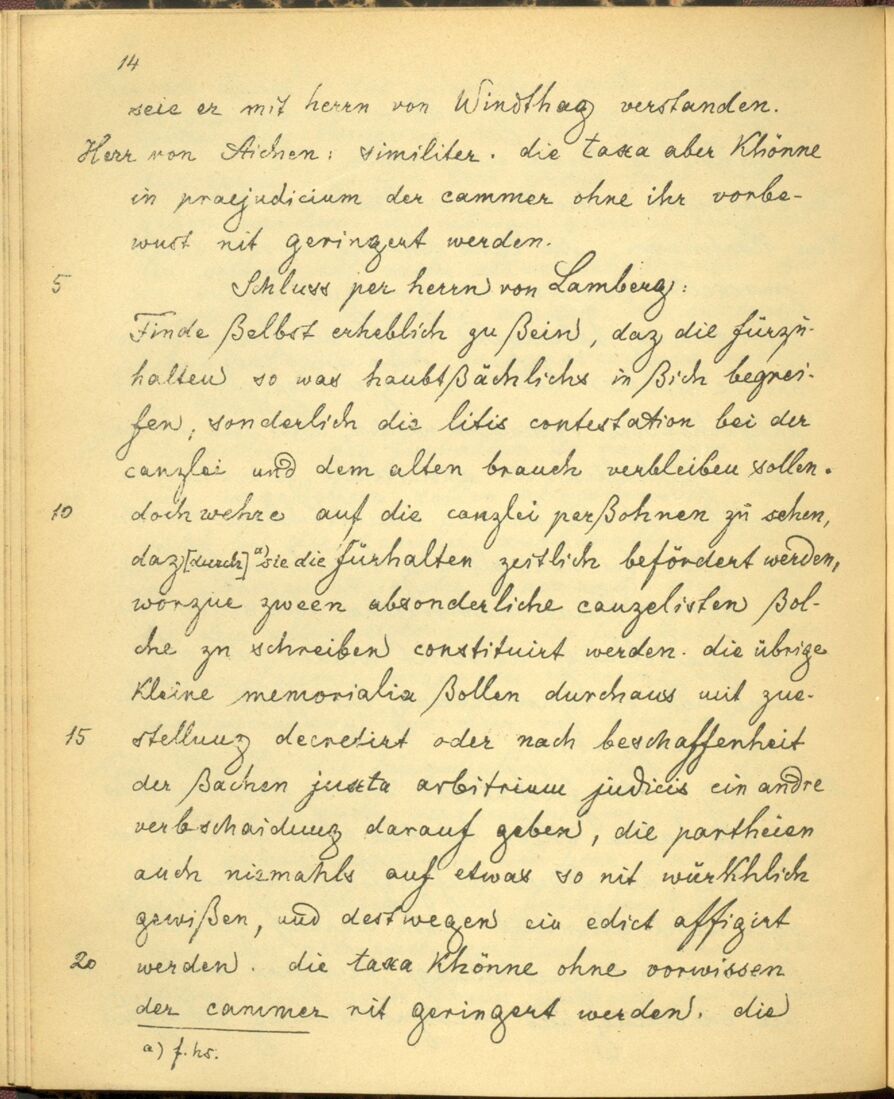 14
seie er mit herrn von Windthag verstanden.
Herr von Aichen: similiter. die taxa aber khönne
in praejudicium der cammer ohne ihr vorbe-
wust nit geringert werden.
5 Schluss per herrn von Lamberg:
Finde ßelbst erheblich zu ßein, daz die fürzu-
halten so was haubtßächlichs in ßich begrei-
fen, sonderlich die litis contestation bei der
canzlei und dem alten brauch verbleiben sollen.
10 doch wehre auf die canzlei perßohnen zu sehen,
daz [durch] a) sie die fürhalten zeitlich befördert werden,
worzue zween absonderliche canzelisten ßol-
che zu schreiben constituirt werden. die übrige
kleine memorialia ßollen durchaus mit zue-
15 stellung decretirt oder nach beschaffenheit
der ßachen juxta arbitrium judicis ein andre
verbschaidung darauf geben, die partheien
auch niemahls auf etwas so nit würkhlich
gewißen, und destwegen ein edict affigirt
20 werden. die taxa khönne ohne vorwissen
der cammer nit geringert werden. die
a) f. hs.